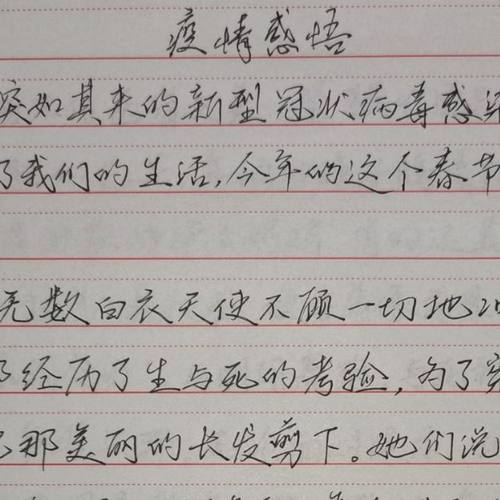 疫情感悟
突如其来的新型冠状病毒感染
了我们的生活,今年的这个春节
无数白衣天使不顾一切地
了经历了生与死的考验,为了
那美丽的长发剪下。她们说